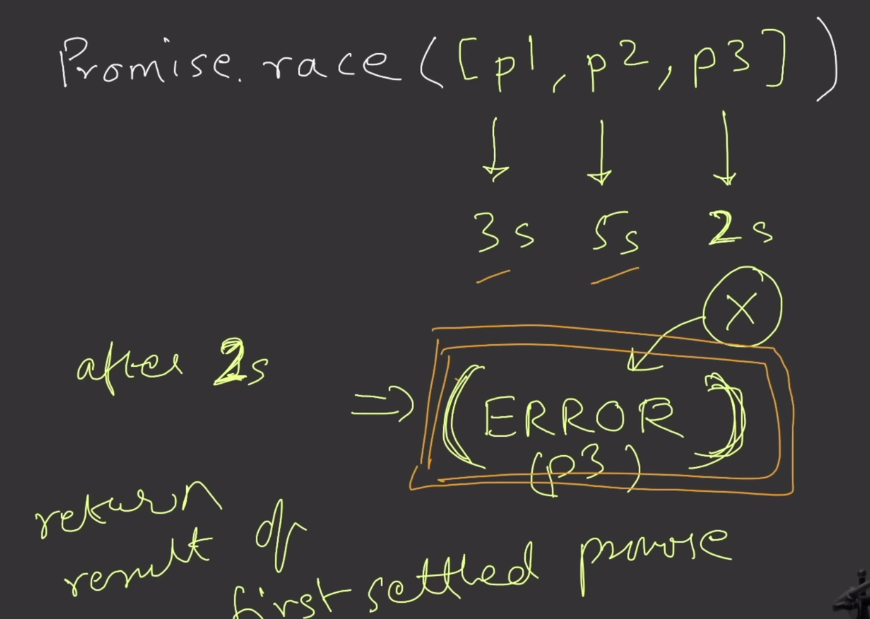 Promise.race([p1, p2, p3])
↓ ↓ ↓
3s 5s 2s
X
after 2s
⇒ (ERROR)
(p3)
return
result of
first settled promise